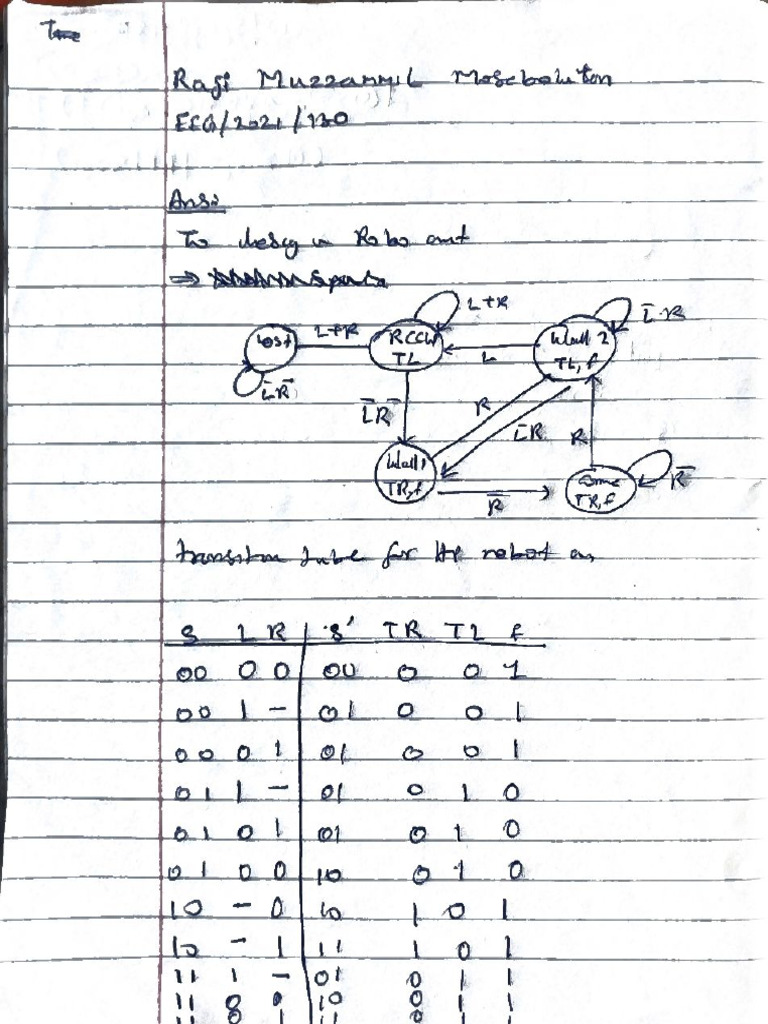 Raji Muzzammil Mosobalaton
EEG/2021/130
Ans:
To desig n Robo ant
⇒
lost
L+R
RCCW
TL
L+R
L
Wall 2
TL, f
L̅·R
L̅R̅
L̅R̅
R
L̅R̅
R
Wall 1
TR, f
R̅
TR, f
R̅
transition table for the robot an
S L R | S' TR TL f
00 0 0 | 00 0 0 1
00 1 - | 01 0 0 1
00 0 1 | 01 0 0 1
01 1 - | 01 0 1 0
01 0 1 | 01 0 1 0
01 0 0 | 10 0 1 0
10 - 0 | 10 1 0 1
10 - 1 | 11 1 0 1
11 1 - | 01 0 1 1
11 0 0 | 10 0 1 1
11 0 1 | 11 0 1 1